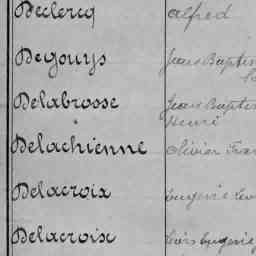 Declercq Alfred
Degouys Jean Baptis
Delabrosse Jean Baptis
Henri
Delachienne Olivier Fran
Delacroix Eugenie
Delacroix Eugenie